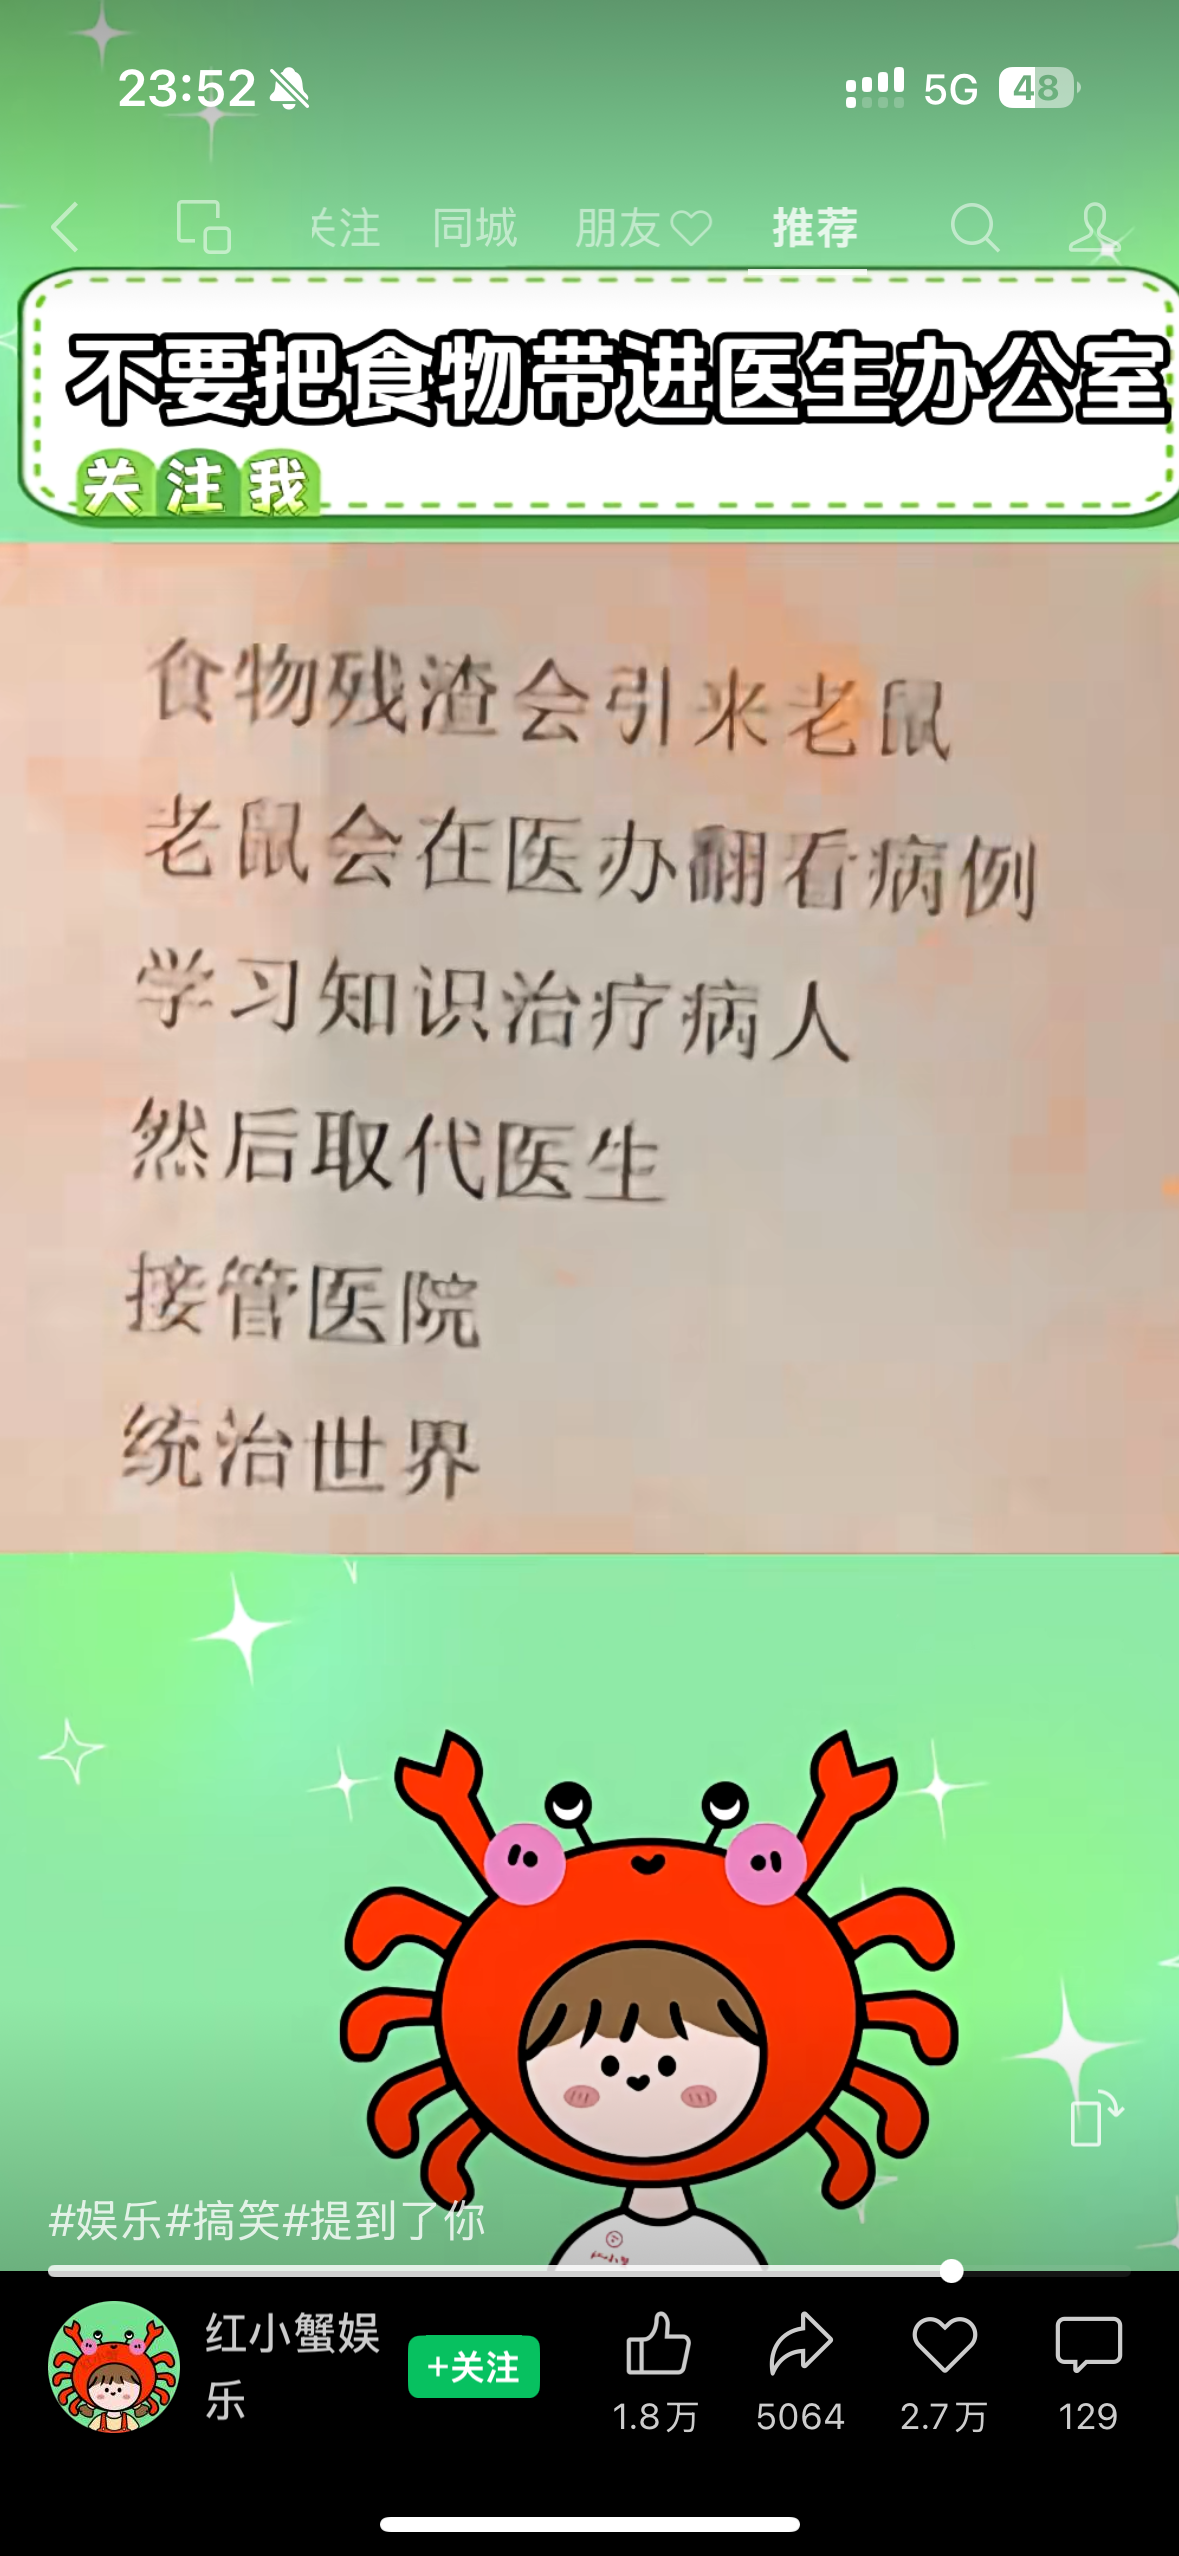 23:52 5G 48
关注 同城 朋友 推荐
不要把食物带进医生办公室
关注我
食物残渣会引来老鼠
老鼠会在医办翻看病例
学习知识治疗病人
然后取代医生
接管医院
统治世界
#娱乐#搞笑#提到了你
红小蟹娱
乐
+关注
1.8万 5064 2.7万 129